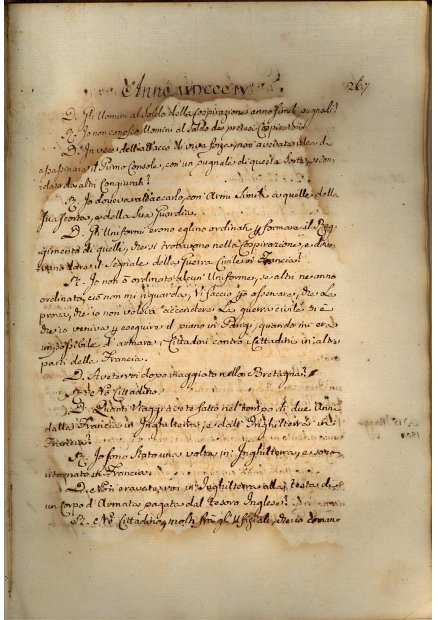 Anno MDCCCIV 267
D. Gli Uomini al Soldo della Cospirazione anno simili pugnali?
R. Io non conosco Uomini al Soldo de pretesi Cospiratori
D. In vece dell'attacco di viva forza, non avevate idea di
assassinare il Primo Console, con un pugnale di questa sorta, secon
dato da altri Congiurati?
R. Io doveva attaccarlo, con Armi Simili a quelle della
sua scorta, e della sua Guardia.
D. Gli Uniformi erono eglino ordinati p formare il Reg
gimento di quelli, che si trovavono nella Cospirazione, e
dare il Segnale della Guerra Civile in Francia?
R. Io non ò ordinato alcun' Uniforme, se altri ne anno
ordinato, ciò non mi riguarda, Vi faccio osservare, che La
prova, che io non voleva accendere La guerra civile si è
che io veniva p eseguire il piano in Parigi, quando mi era
impossibile d'armare Cittadini contro Cittadini in altre
parti della Francia.
D. Avete voi dopo viaggiato nella Bretagna?
R. No Cittadino
D. Quanti Viaggi avete fatto nel tempo di due Anni
dalla Francia in Inghilterra, e dall' Inghilterra in
Francia?
R. Io sono Stato una volta in Inghilterra, e sono
ritornato in Francia.
D. Non eravate voi in Inghilterra alla testa di
un Corpo d'Armata pagata dal Tesoro Inglese?
R. No Cittadino, molti frà gl' Uffiziali, che io coman